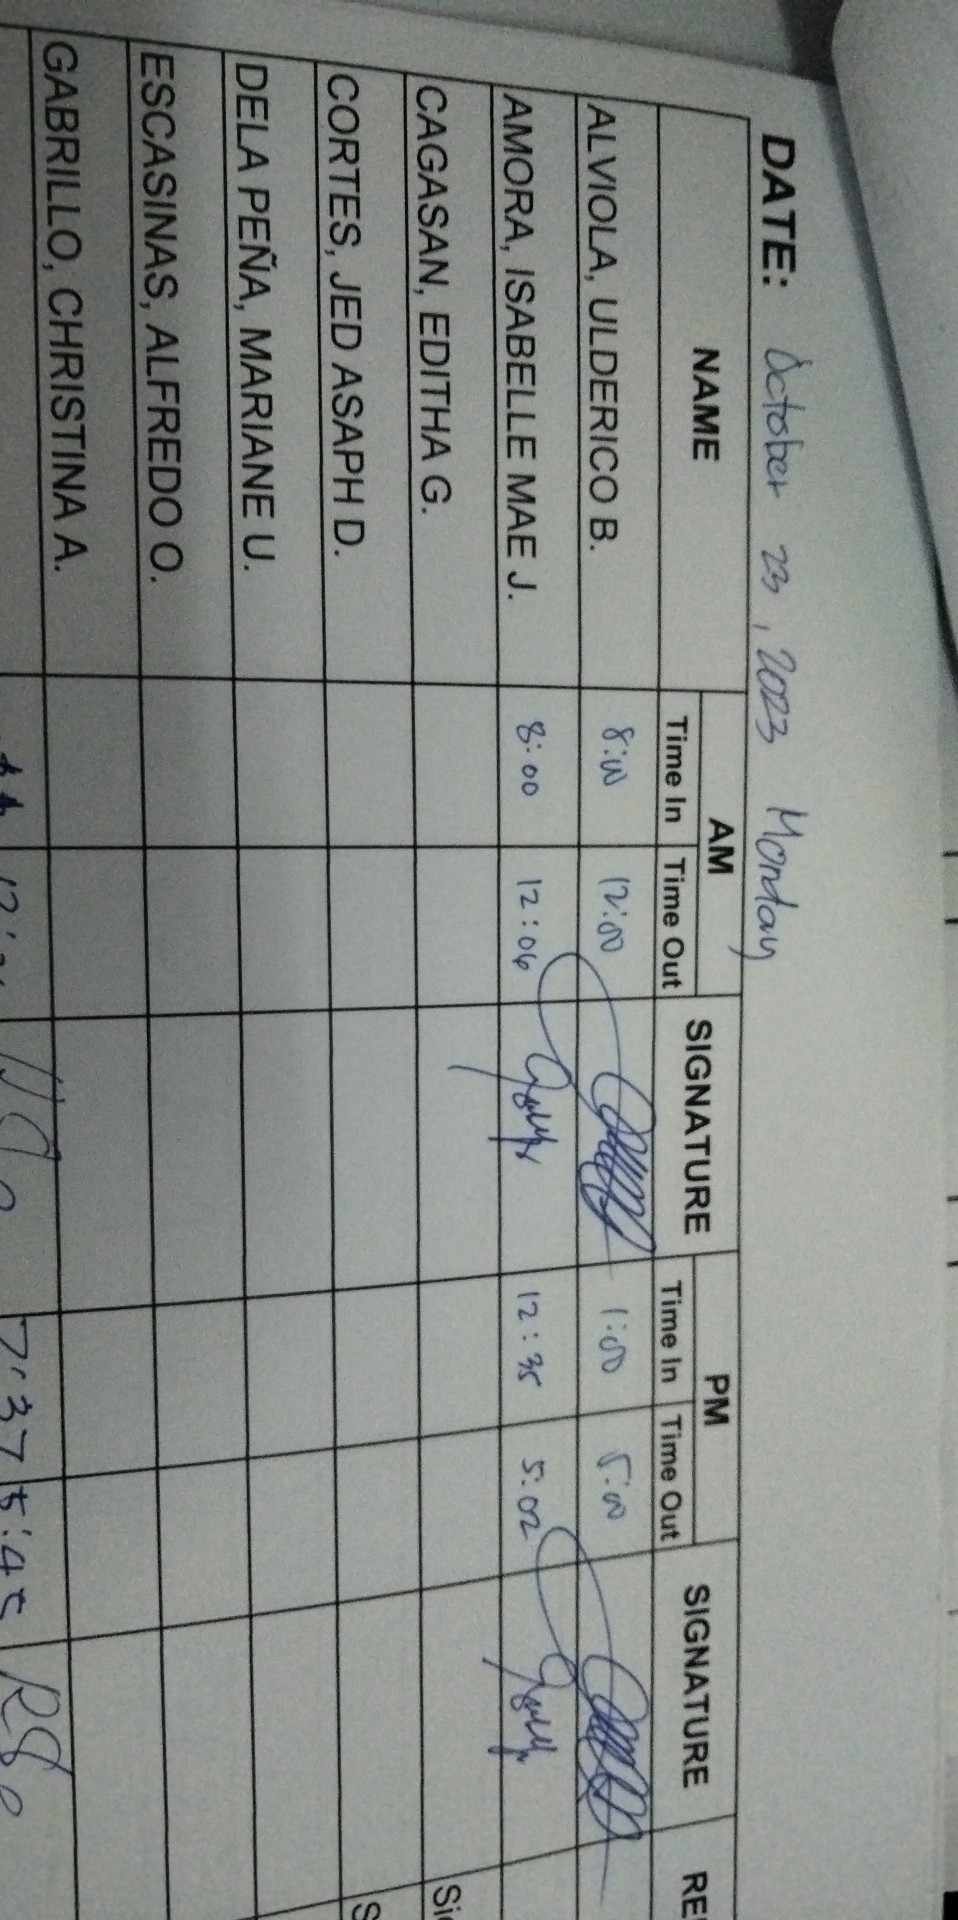 DATE: October 23, 2023 Monday
NAME AM SIGNATURE PM SIGNATURE
Time In Time Out Time In Time Out
ALVIOLA, ULDERICO B. 8:00 12:00 1:00 5:00
AMORA, ISABELLE MAE J. 8:00 12:06 12:35 5:02
CAGASAN, EDITHA G.
CORTES, JED ASAPH D.
DELA PEÑA, MARIANE U.
ESCASINAS, ALFREDO O.
GABRILLO, CHRISTINA A.